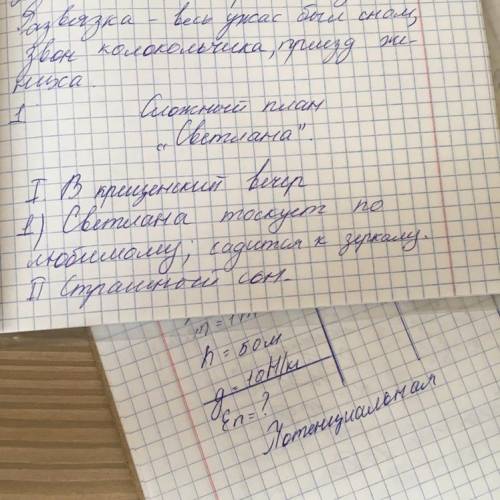 Развязка - весь ужас был сном,
звон колокольчика, приезд же-
ниха.
1 Сложный план
"Светлана".
I В крещенский вечер
1) Светлана тоскует по
любимому; садится к зеркалу.
II Страшный сон.
h = 50м
g = 10Н/кг
Еп = ?
Потенциальная